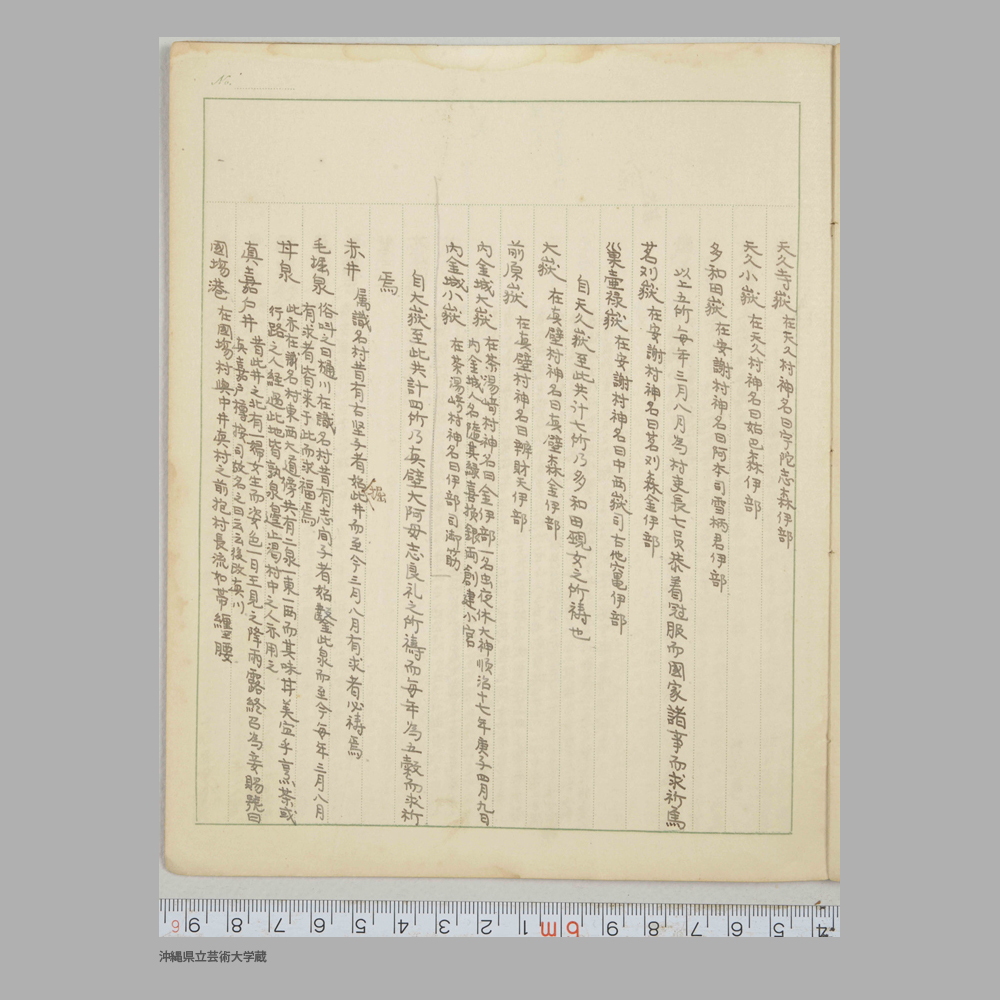 No.
天久寺嶽 在天久村神名曰宇陀志森伊部
天久小嶽 在天久村神名曰始巴森伊部
多和田嶽 在安謝村神名曰阿本司雪柄君伊部
以上五所毎年三月八月為村吏長七員恭着冠服而國家諸事而求祈焉
茗刈嶽 在安謝村神名曰茗刈森金伊部
巣壷禄嶽 在安謝村神名曰中西嶽司右他亀伊部
自天久嶽至此共計七所乃多和田覡女之所祷也
大嶽 在真壁村神名曰真壁森金伊部
前原嶽 在真壁村神名曰辨財天伊部
内金城大嶽 在茶湯崎村神名曰金伊部一名出夜休大神順治十七年庚子四月九日
内金城人名 喜捨銀両創建小宮
内金城小嶽 在茶湯崎村神名曰伊部司御筋
自大嶽至此共計四所乃真壁大阿母志良礼之所祷而毎年為五穀而求祈
焉
赤井 属識名村昔有右坚子者始此井而至今三月八月有求者必祷焉
堀
毛堀泉 俗叫之曰樋川在識名村昔有志直子者始鑿此泉而至今毎年三月八月
有求者皆来于此而求福焉
丼泉 此亦在識名村東西大道傍共有二泉一東一西而其味丼美宜乎烹茶或
行路之人経過此地皆就泉邊止渇村中之人亦用之
真嘉戸井 昔此井之北有一婦女生而姿色一日王見之降雨露終已為妾賜號曰
真嘉戸樽按司故名之曰云云後改真川
國場港 在國場村與中井真村之前抱村長流如帯纒腰
9 8 7 6 5 4 3 2 1 m 9 8 7 6 5
沖縄県立芸術大学蔵